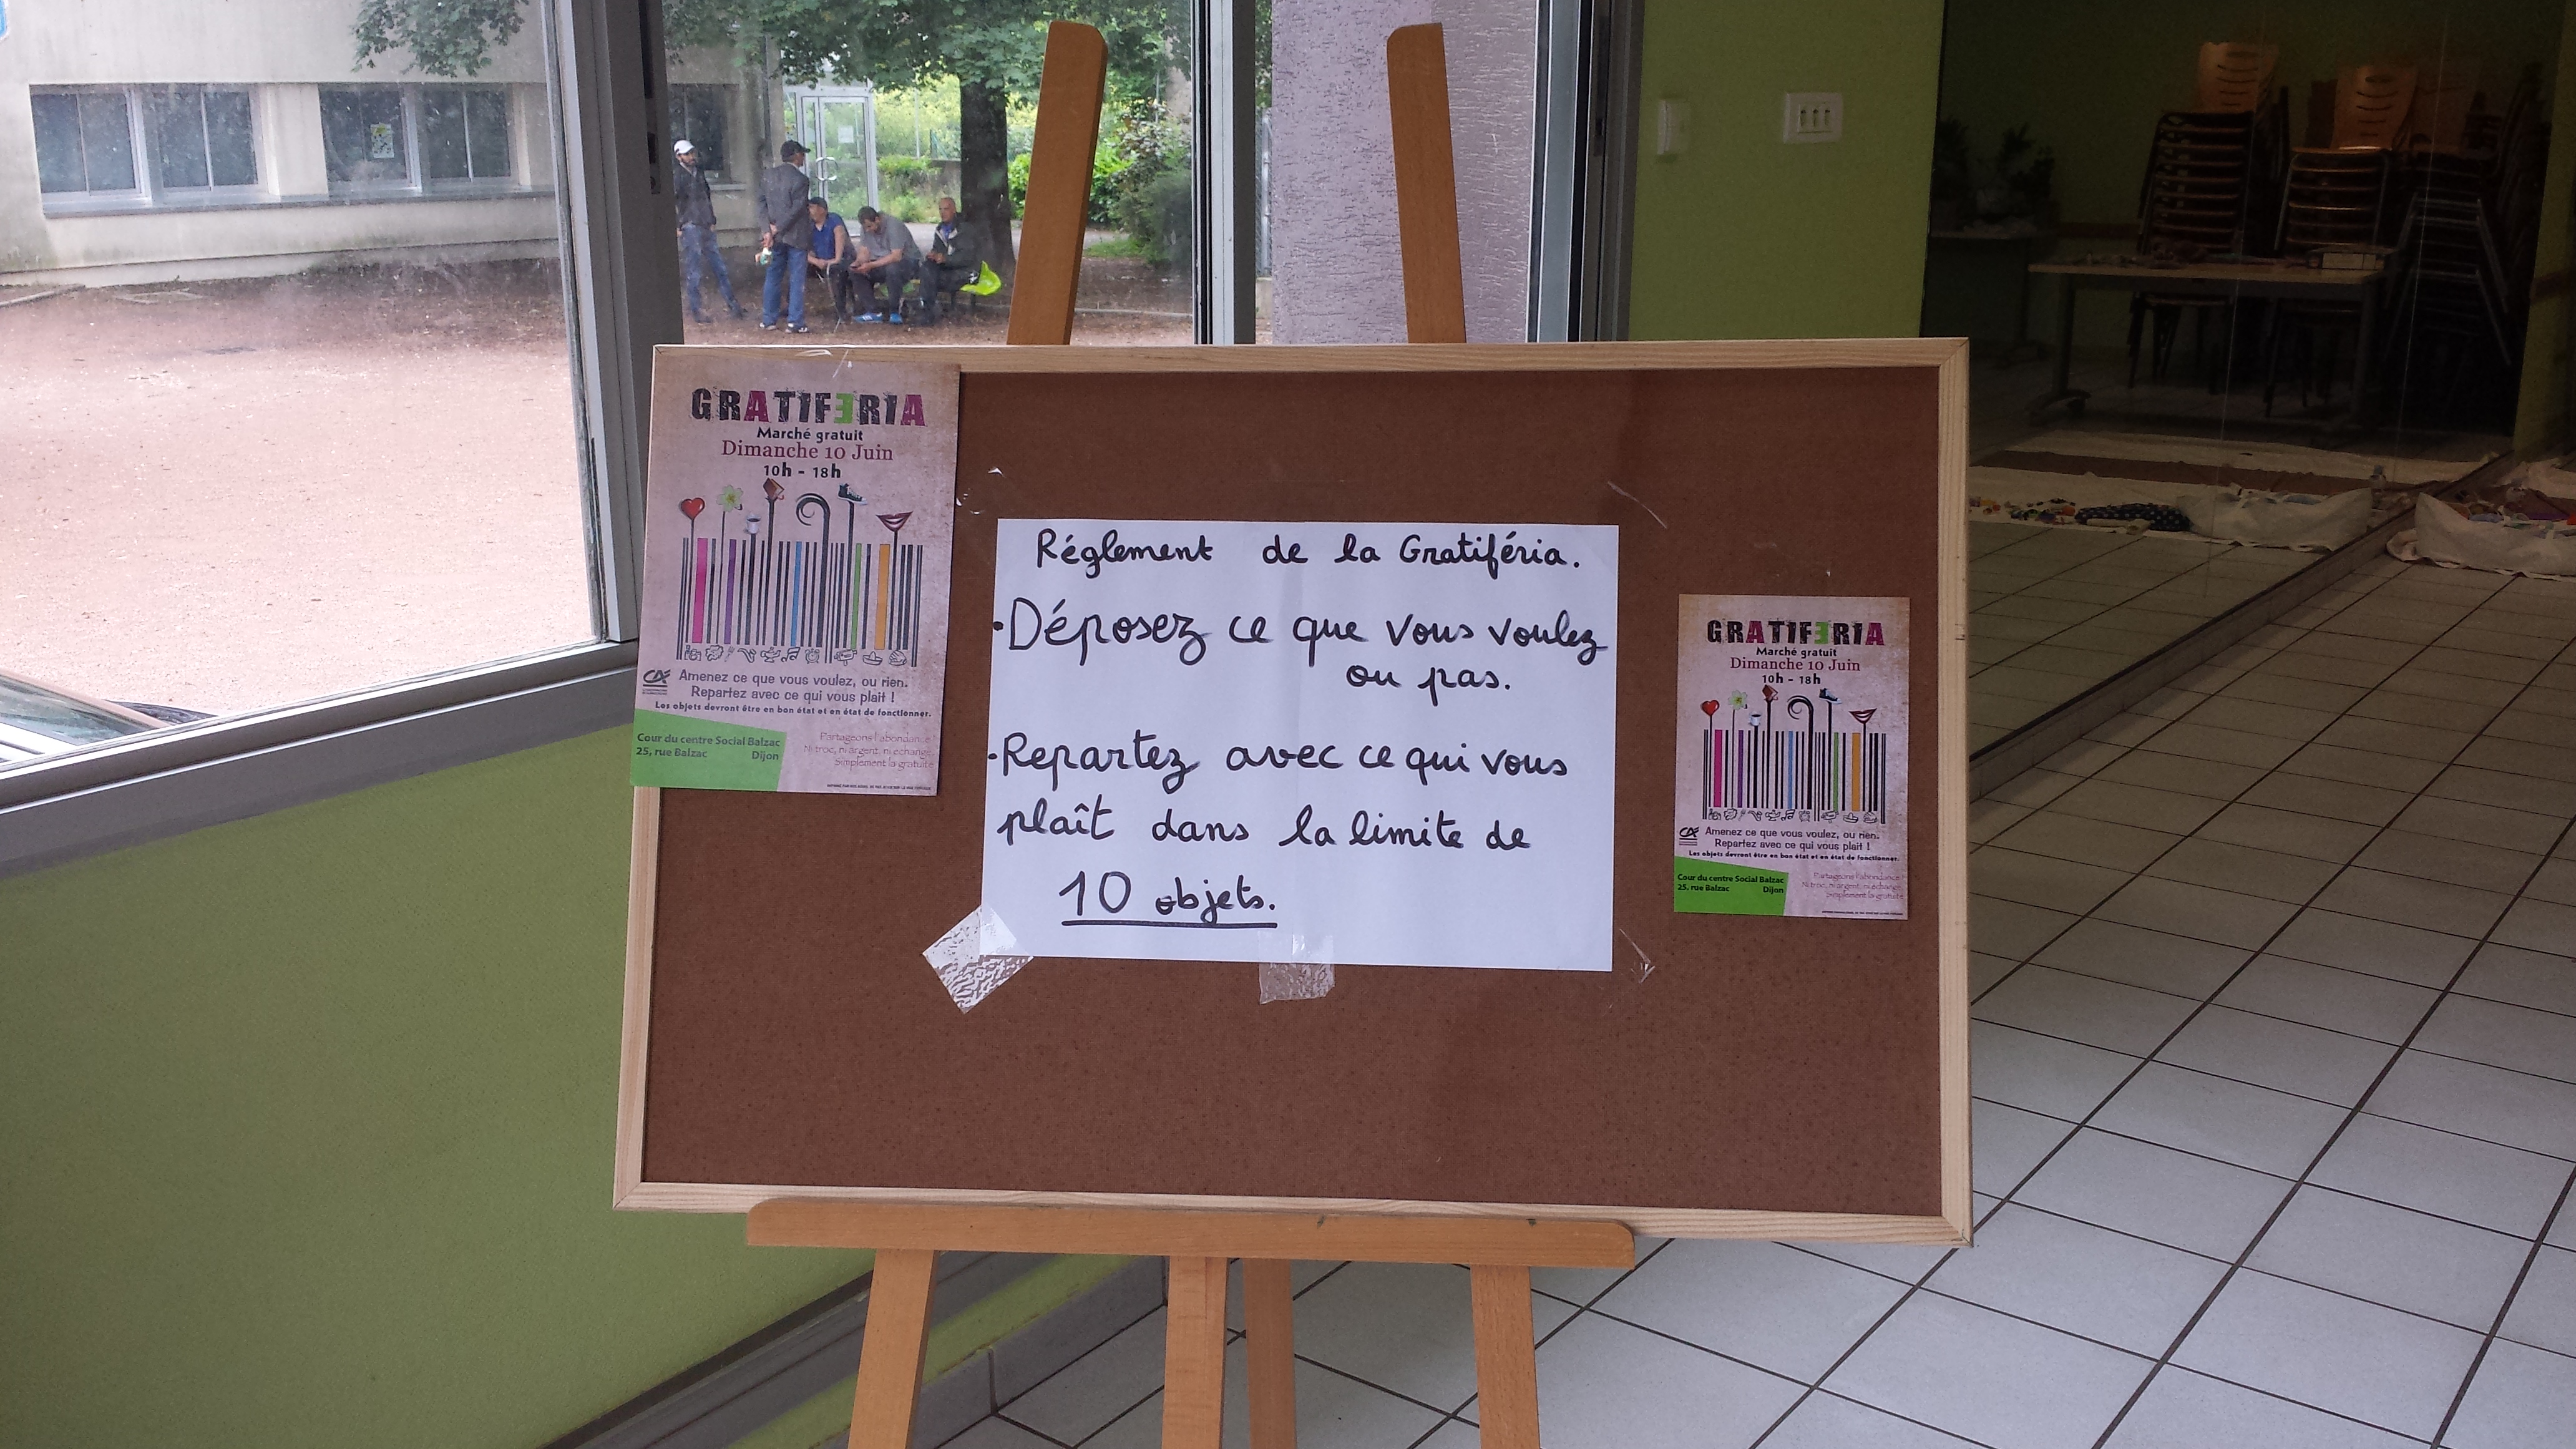 GRATIFERIA
Marché gratuit
Dimanche 10 Juin
10h - 18h
Amenez ce que vous voulez, ou rien.
Repartez avec ce qui vous plait !
Les objets devront être en bon état et en état de fonctionner.
Cour du centre Social Balzac
25, rue Balzac Dijon
Partageons l'abondance
Ni troc, ni argent, ni échange
Simplement la gratuité
Réglement de la Gratiféria.
• Déposez ce que vous voulez
ou pas.
• Repartez avec ce qui vous
plaît dans la limite de
10 objets.
GRATIFERIA
Marché gratuit
Dimanche 10 Juin
10h - 18h
Amenez ce que vous voulez, ou rien.
Repartez avec ce qui vous plait !
Les objets devront être en bon état et en état de fonctionner.
Cour du centre Social Balzac
25, rue Balzac Dijon
Partageons l'abondance
Ni troc, ni argent, ni échange
Simplement la gratuité